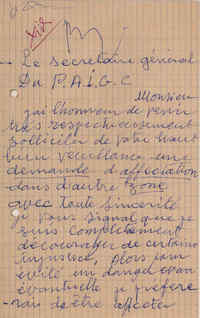 - Le secretaire général
Du P.A.I.G.C
Monsieur
j'ai l'honneur de venir
très respectueusement
solliciter de votre haut
bien veuillance une
demande d'affectation
dans d'autre zone
avec toute sincérité
je vous signal que je
suis complètement
découragé de certaine
injustice, alors pour
évité un danger
éventuelle je préfère
- rais de être affecter